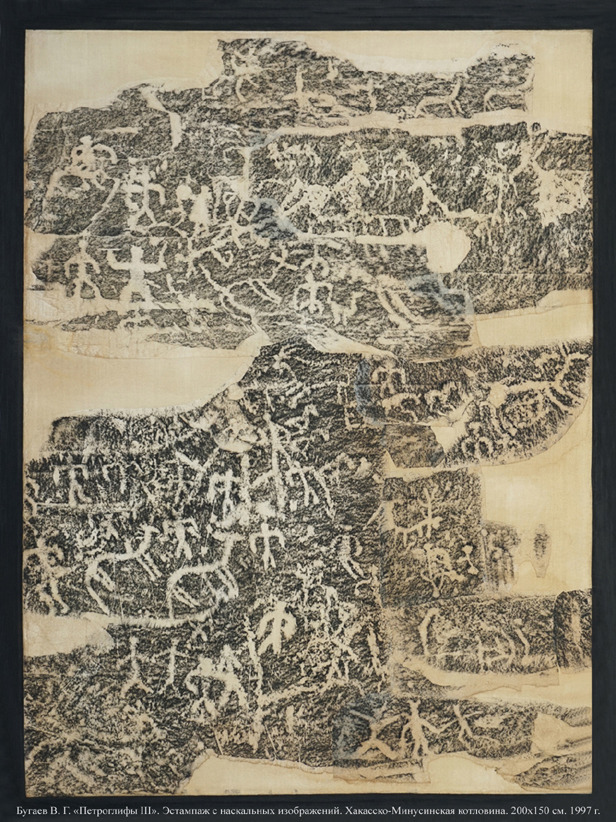 Бугаев В. Г. «Петроглифы III». Эстампаж с наскальных изображений. Хакасско-Минусинская котловина. 200х150 см. 1997 г.